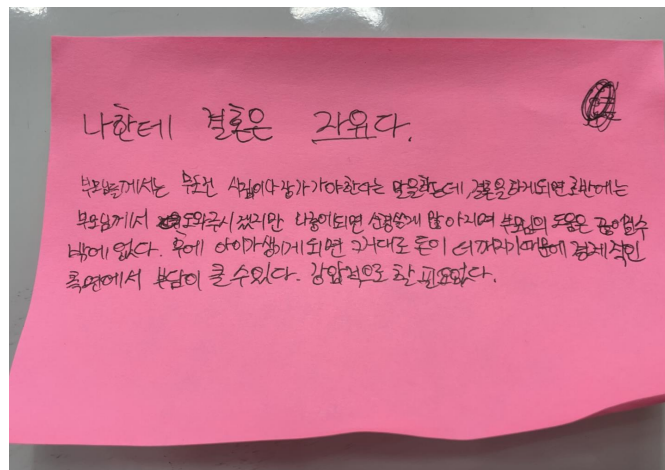 나한테 결혼은 자유다.
부모님들께서는 무조건 시집이나 장가 가야한다는 말을하는데 결혼을하게되면 초반에는
부모님께서 도와주시겠지만 나중에되면 신경쓸게 많아지며 부모님의 도움은 끊이질수
밖에 없다. 후에 아이가생기게 되면 그거대로 돈이 더 깨지기때문에 경제적인
측면에서 부담이 클 수 있다. 강압적으로 할 필요없다.